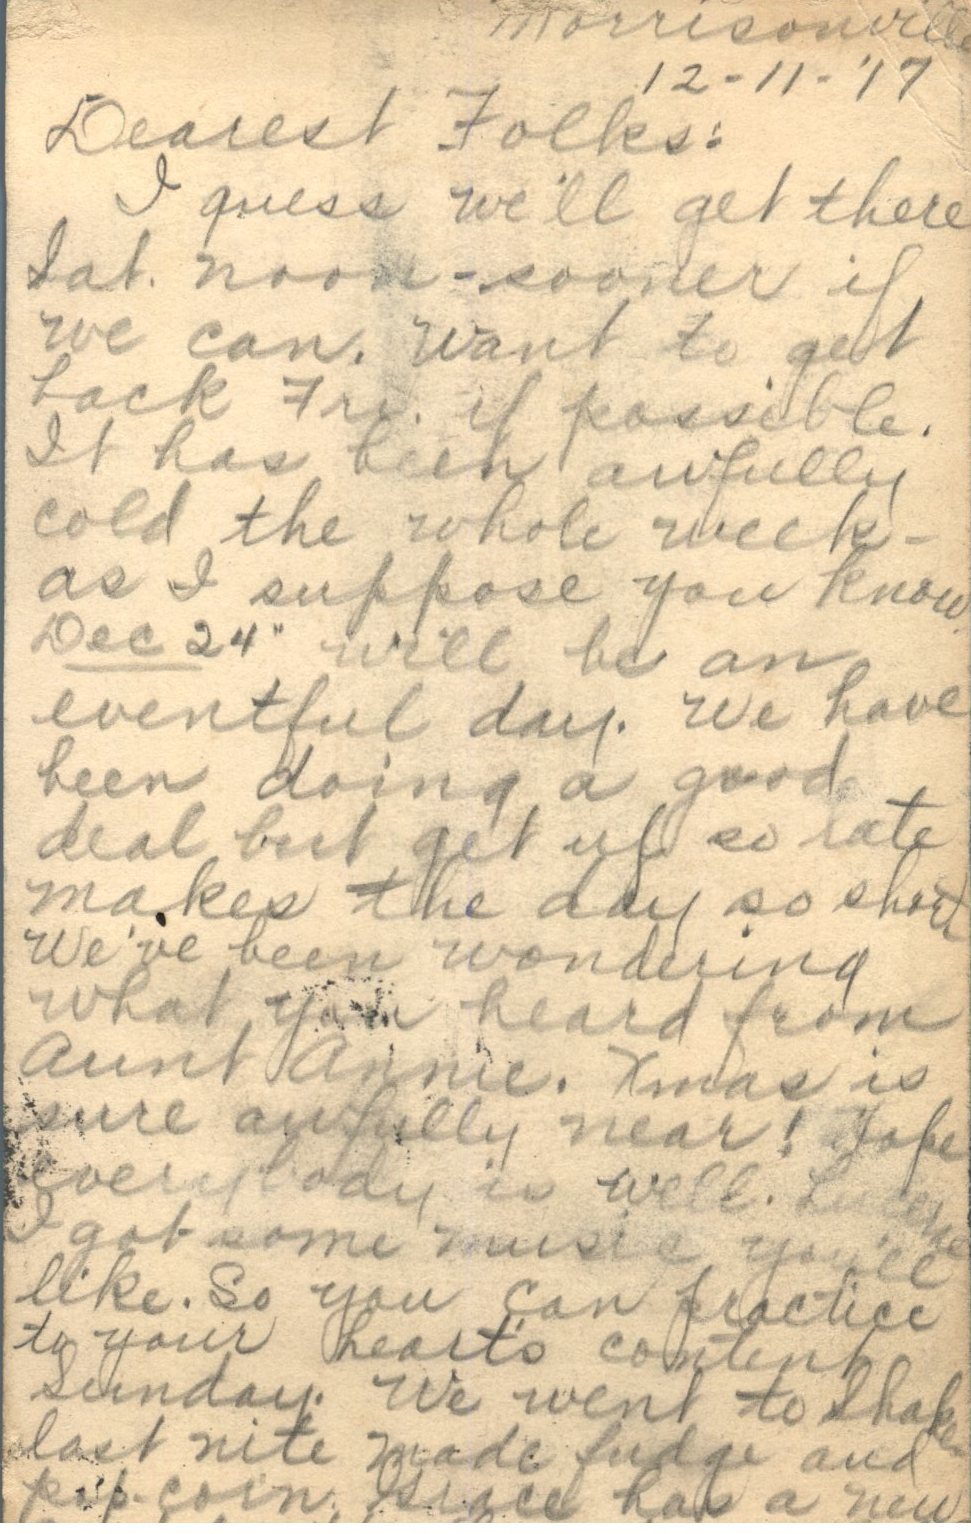 Morrisonville
12-11-'17
Dearest Folks:
I guess we'll get there
Sat. noon-sooner if
we can. Want to get
back Fri. if possible.
It has been awfully
cold the whole week-
as I suppose you know.
Dec 24" will be an
eventful day. We have
been doing a good
deal but get up so late
makes the day so short
We've been wondering
what you heard from
Aunt Annie. Xmas is
sure awfully near! Hope
everybody is well.
I got some music you'll
like. So you can practice
to your heart's content
Sunday. We went to
last nite made fudge and
pop-corn. Grace has a new